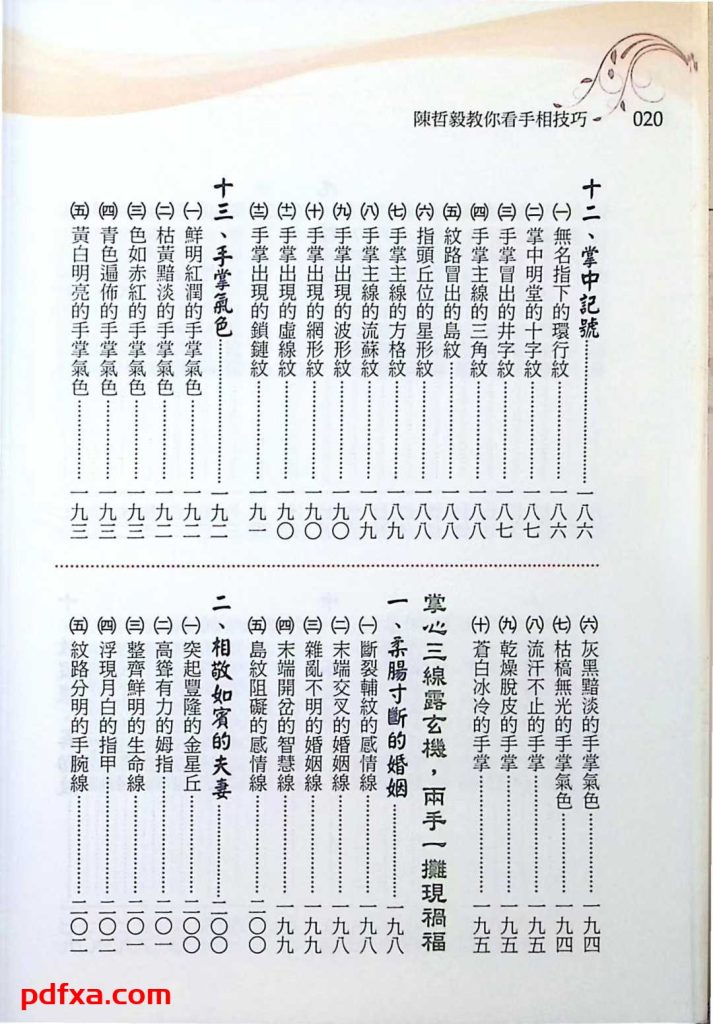 陳哲毅教你看手相技巧 020
十二、掌中記號……一八六
㈠無名指下的環行紋……一八六
㈡掌中明堂的十字紋……一八七
㈢手掌冒出的井字紋……一八七
㈣手掌主線的三角紋……一八八
㈤紋路冒出的島紋……一八八
㈥指頭丘位的星形紋……一八八
㈦手掌主線的方格紋……一八九
㈧手掌主線的流蘇紋……一八九
㈨手掌出現的波形紋……一九〇
㈩手掌出現的網形紋……一九〇
(十一)手掌出現的虛線紋……一九〇
(十二)手掌出現的鎖鏈紋……一九一
十三、手掌氣色……一九二
㈠鮮明紅潤的手掌氣色……一九二
㈡枯黃黯淡的手掌氣色……一九二
㈢色如赤紅的手掌氣色……一九三
㈣青色遍佈的手掌氣色……一九三
㈤黃白明亮的手掌氣色……一九三
㈥灰黑黯淡的手掌氣色……一九四
㈦枯槁無光的手掌氣色……一九四
㈧流汗不止的手掌……一九五
㈨乾燥脫皮的手掌……一九五
㈩蒼白冰冷的手掌……一九五
掌心三線露玄機，兩手一攤現禍福
一、柔腸寸斷的婚姻……一九八
㈠斷裂輔紋的感情線……一九八
㈡末端交叉的婚姻線……一九八
㈢雜亂不明的婚姻線……一九九
㈣末端開岔的智慧線……一九九
㈤島紋阻礙的感情線……二〇〇
二、相敬如賓的夫妻……二〇〇
㈠突起豐隆的金星丘……二〇〇
㈡高聳有力的姆指……二〇一
㈢整齊鮮明的生命線……二〇一
㈣浮現月白的指甲……二〇二
㈤紋路分明的手腕線……二〇二
pdfxa.com